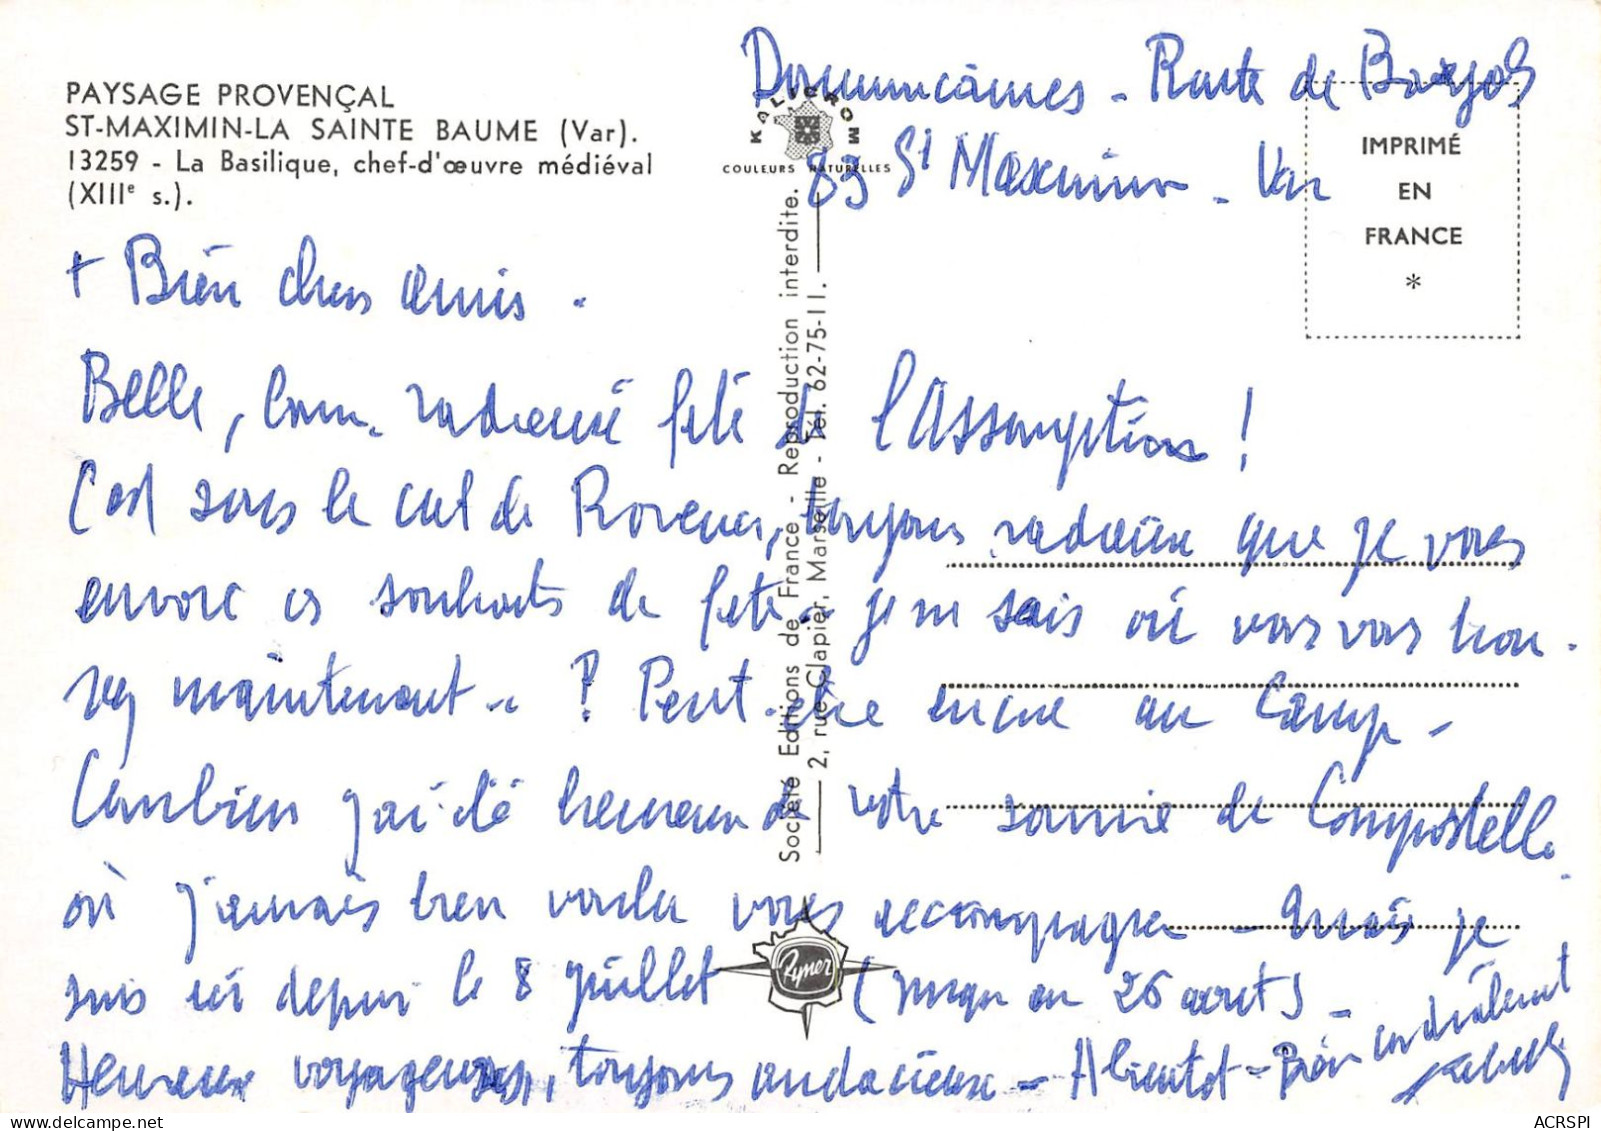 PAYSAGE PROVENÇAL
ST-MAXIMIN-LA SAINTE BAUME (Var).
13259 - La Basilique, chef-d'œuvre médiéval
(XIIIe s.).
KALICROM
COULEURS NATURELLES
Dominicaines - Route de Barjols
83 St Maximin - Var
IMPRIMÉ
EN
FRANCE
*
Société Editions de France - Reproduction interdite.
2, rue Clapier, Marseille - Tél. 62-75-11.
+ Bien chers amis.
Belle, radieuse fête de l'Assomption !
C'est sous le ciel de Provence, toujours radieux que je vous
envoie ces souhaits de fête.. je ne sais où vous vous trou-
vez maintenant.. ? Peut-être encore au Camp -
Combien j'ai été heureux de votre soirée de Compostelle
où j'aimais bien vouloir vous accompagner - Mais je
suis ici depuis le 8 juillet (jusqu'au 26 août) -
Rymer
Heureux voyageurs, toujours audacieux - A bientôt - Bien cordialement
ACRSPI